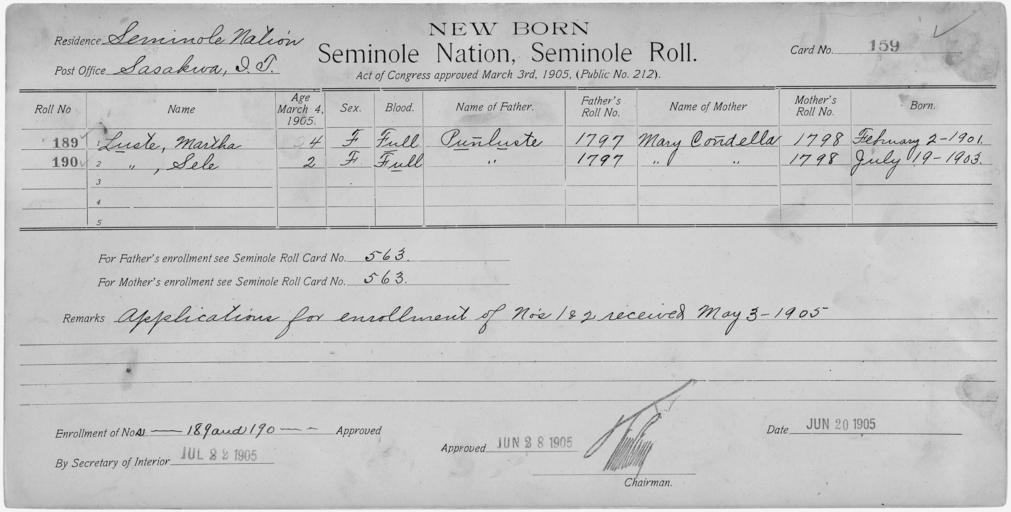 NEW BORN
Residence Seminole Nation
Seminole Nation, Seminole Roll.
Card No. 159
Post Office Sasakwa, I.T.
Act of Congress approved March 3rd, 1905, (Public No. 212).
Roll No Name Age March 4, 1905. Sex. Blood. Name of Father. Father's Roll No. Name of Mother Mother's Roll No. Born.
189 1 Luste, Martha 4 F Full Punluste 1797 Mary Condella 1798 February 2-1901.
190 2 " , Sele 2 F Full " 1797 " " 1798 July 19-1903.
3
4
5
For Father's enrollment see Seminole Roll Card No. 563.
For Mother's enrollment see Seminole Roll Card No. 563.
Remarks Applications for enrollment of Nos 1 & 2 received May 3-1905
Enrollment of Nos — 189 and 190 — - Approved
By Secretary of Interior JUL 22 1905
Approved JUN 28 1905
Chairman.
Date JUN 20 1905